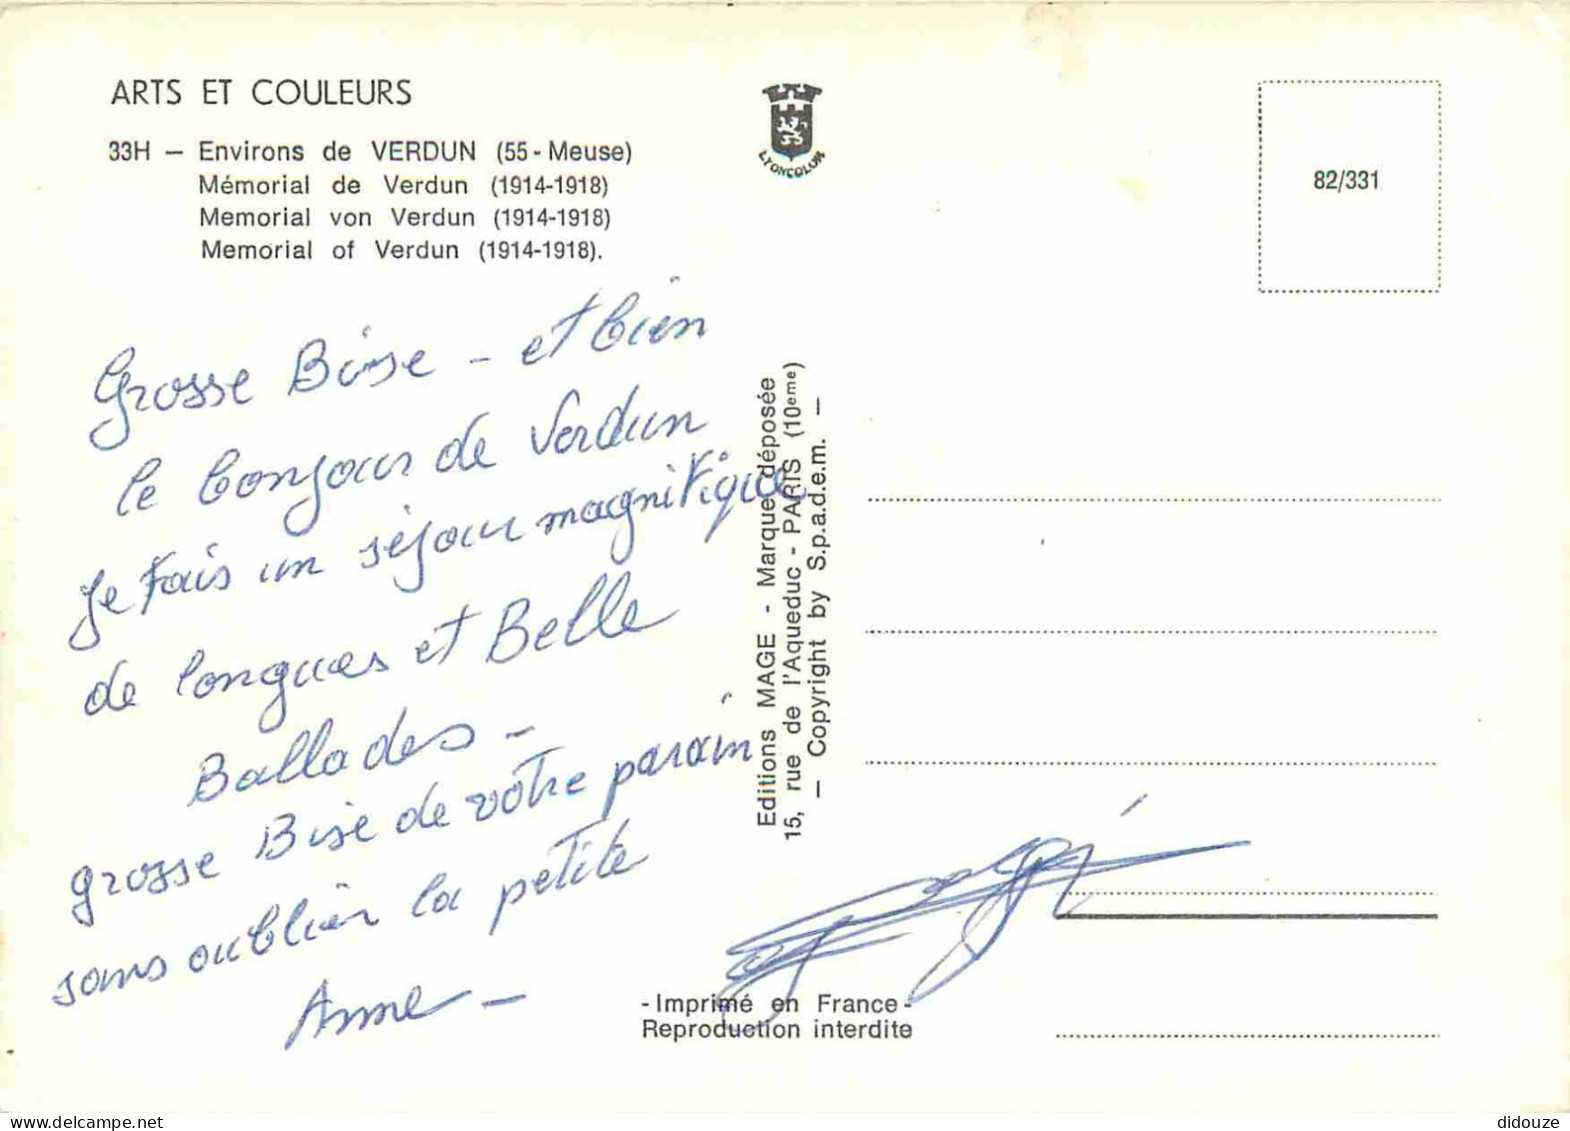 ARTS ET COULEURS
33H — Environs de VERDUN (55-Meuse)
Mémorial de Verdun (1914-1918)
Memorial von Verdun (1914-1918)
Memorial of Verdun (1914-1918).
LYONCOLOR
82/331
Grosse Bise - et bien
le bonjour de Verdun
Je fais un séjour magnifique
de longues et Belle
Ballades -
grosse Bise de votre parain
sans oublier la petite
Anne -
Editions MAGE - Marque déposée
15, rue de l'Aqueduc - PARIS (10eme)
— Copyright by S.p.a.d.e.m. —
-Imprimé en France-
Reproduction interdite
www.delcampe.net
didouze